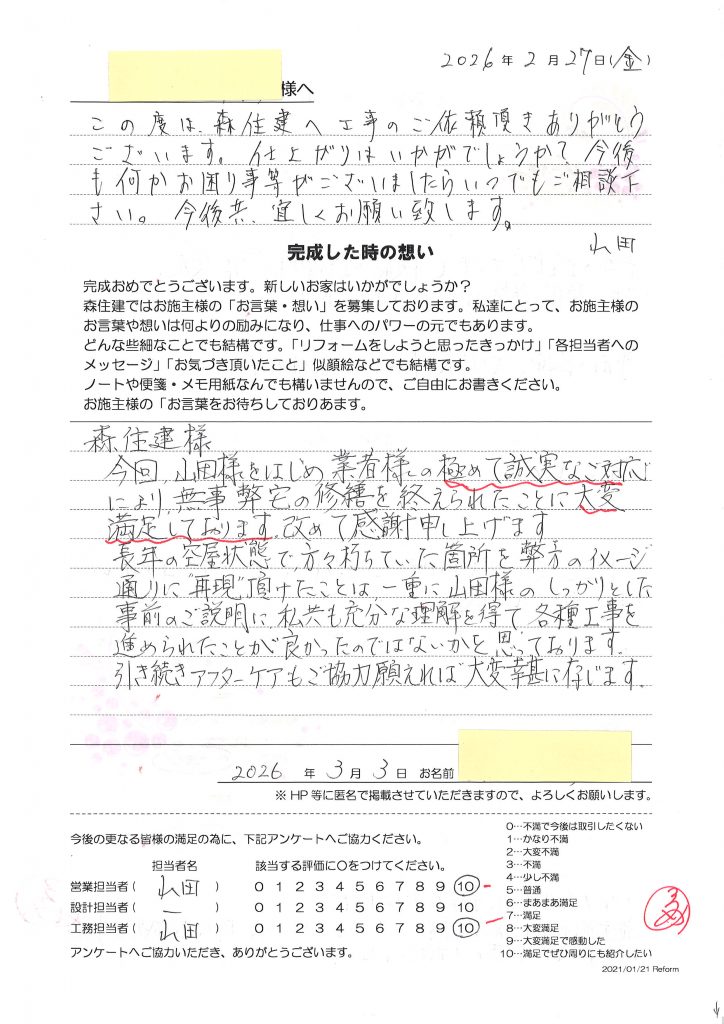 2026年2月27日(金)
様へ
この度は、森住建へ工事のご依頼頂きありがとう
ございます。仕上がりはいかがでしょうか？今後
も何かお困り事等がございましたらいつでもご相談下
さい。今後共、宜しくお願い致します。
山田
完成した時の想い
完成おめでとうございます。新しいお家はいかがでしょうか？
森住建ではお施主様の「お言葉・想い」を募集しております。私達にとって、お施主様の
お言葉や想いは何よりの励みになり、仕事へのパワーの元でもあります。
どんな些細なことでも結構です。「リフォームをしようと思ったきっかけ」「各担当者への
メッセージ」「お気づき頂いたこと」似顔絵などでも結構です。
ノートや便箋・メモ用紙なんでも構いませんので、ご自由にお書きください。
お施主様の「お言葉をお待ちしておりあます。
森住建様
今回、山田様をはじめ業者様の極めて誠実なご対応
により、無事弊宅の修繕を終えられたことに大変
満足しております。改めて感謝申し上げます
長年の空屋状態で、方々朽ちていた箇所を弊方のイメージ
通りに"再現"頂けたことは、一重に山田様のしっかりとした
事前のご説明に、私共も充分な理解を得て、各種工事を
進められたことが良かったのではないかと思っております。
引き続きアフターケアもご協力願えれば大変幸甚に存じます。
2026年3月3日 お名前
※HP等に匿名で掲載させていただきますので、よろしくお願いします。
今後の更なる皆様の満足の為に、下記アンケートへご協力ください。
担当者名 該当する評価に○をつけてください。
営業担当者( 山田 ) 0 1 2 3 4 5 6 7 8 9 10
設計担当者( ー ) 0 1 2 3 4 5 6 7 8 9 10
工務担当者( 山田 ) 0 1 2 3 4 5 6 7 8 9 10
アンケートへご協力いただき、ありがとうございます。
0…不満で今後は取引したくない
1…かなり不満
2…大変不満
3…不満
4…少し不満
5…普通
6…まあまあ満足
7…満足
8…大変満足
9…大変満足で感動した
10…満足でぜひ周りにも紹介したい
2021/01/21 Reform